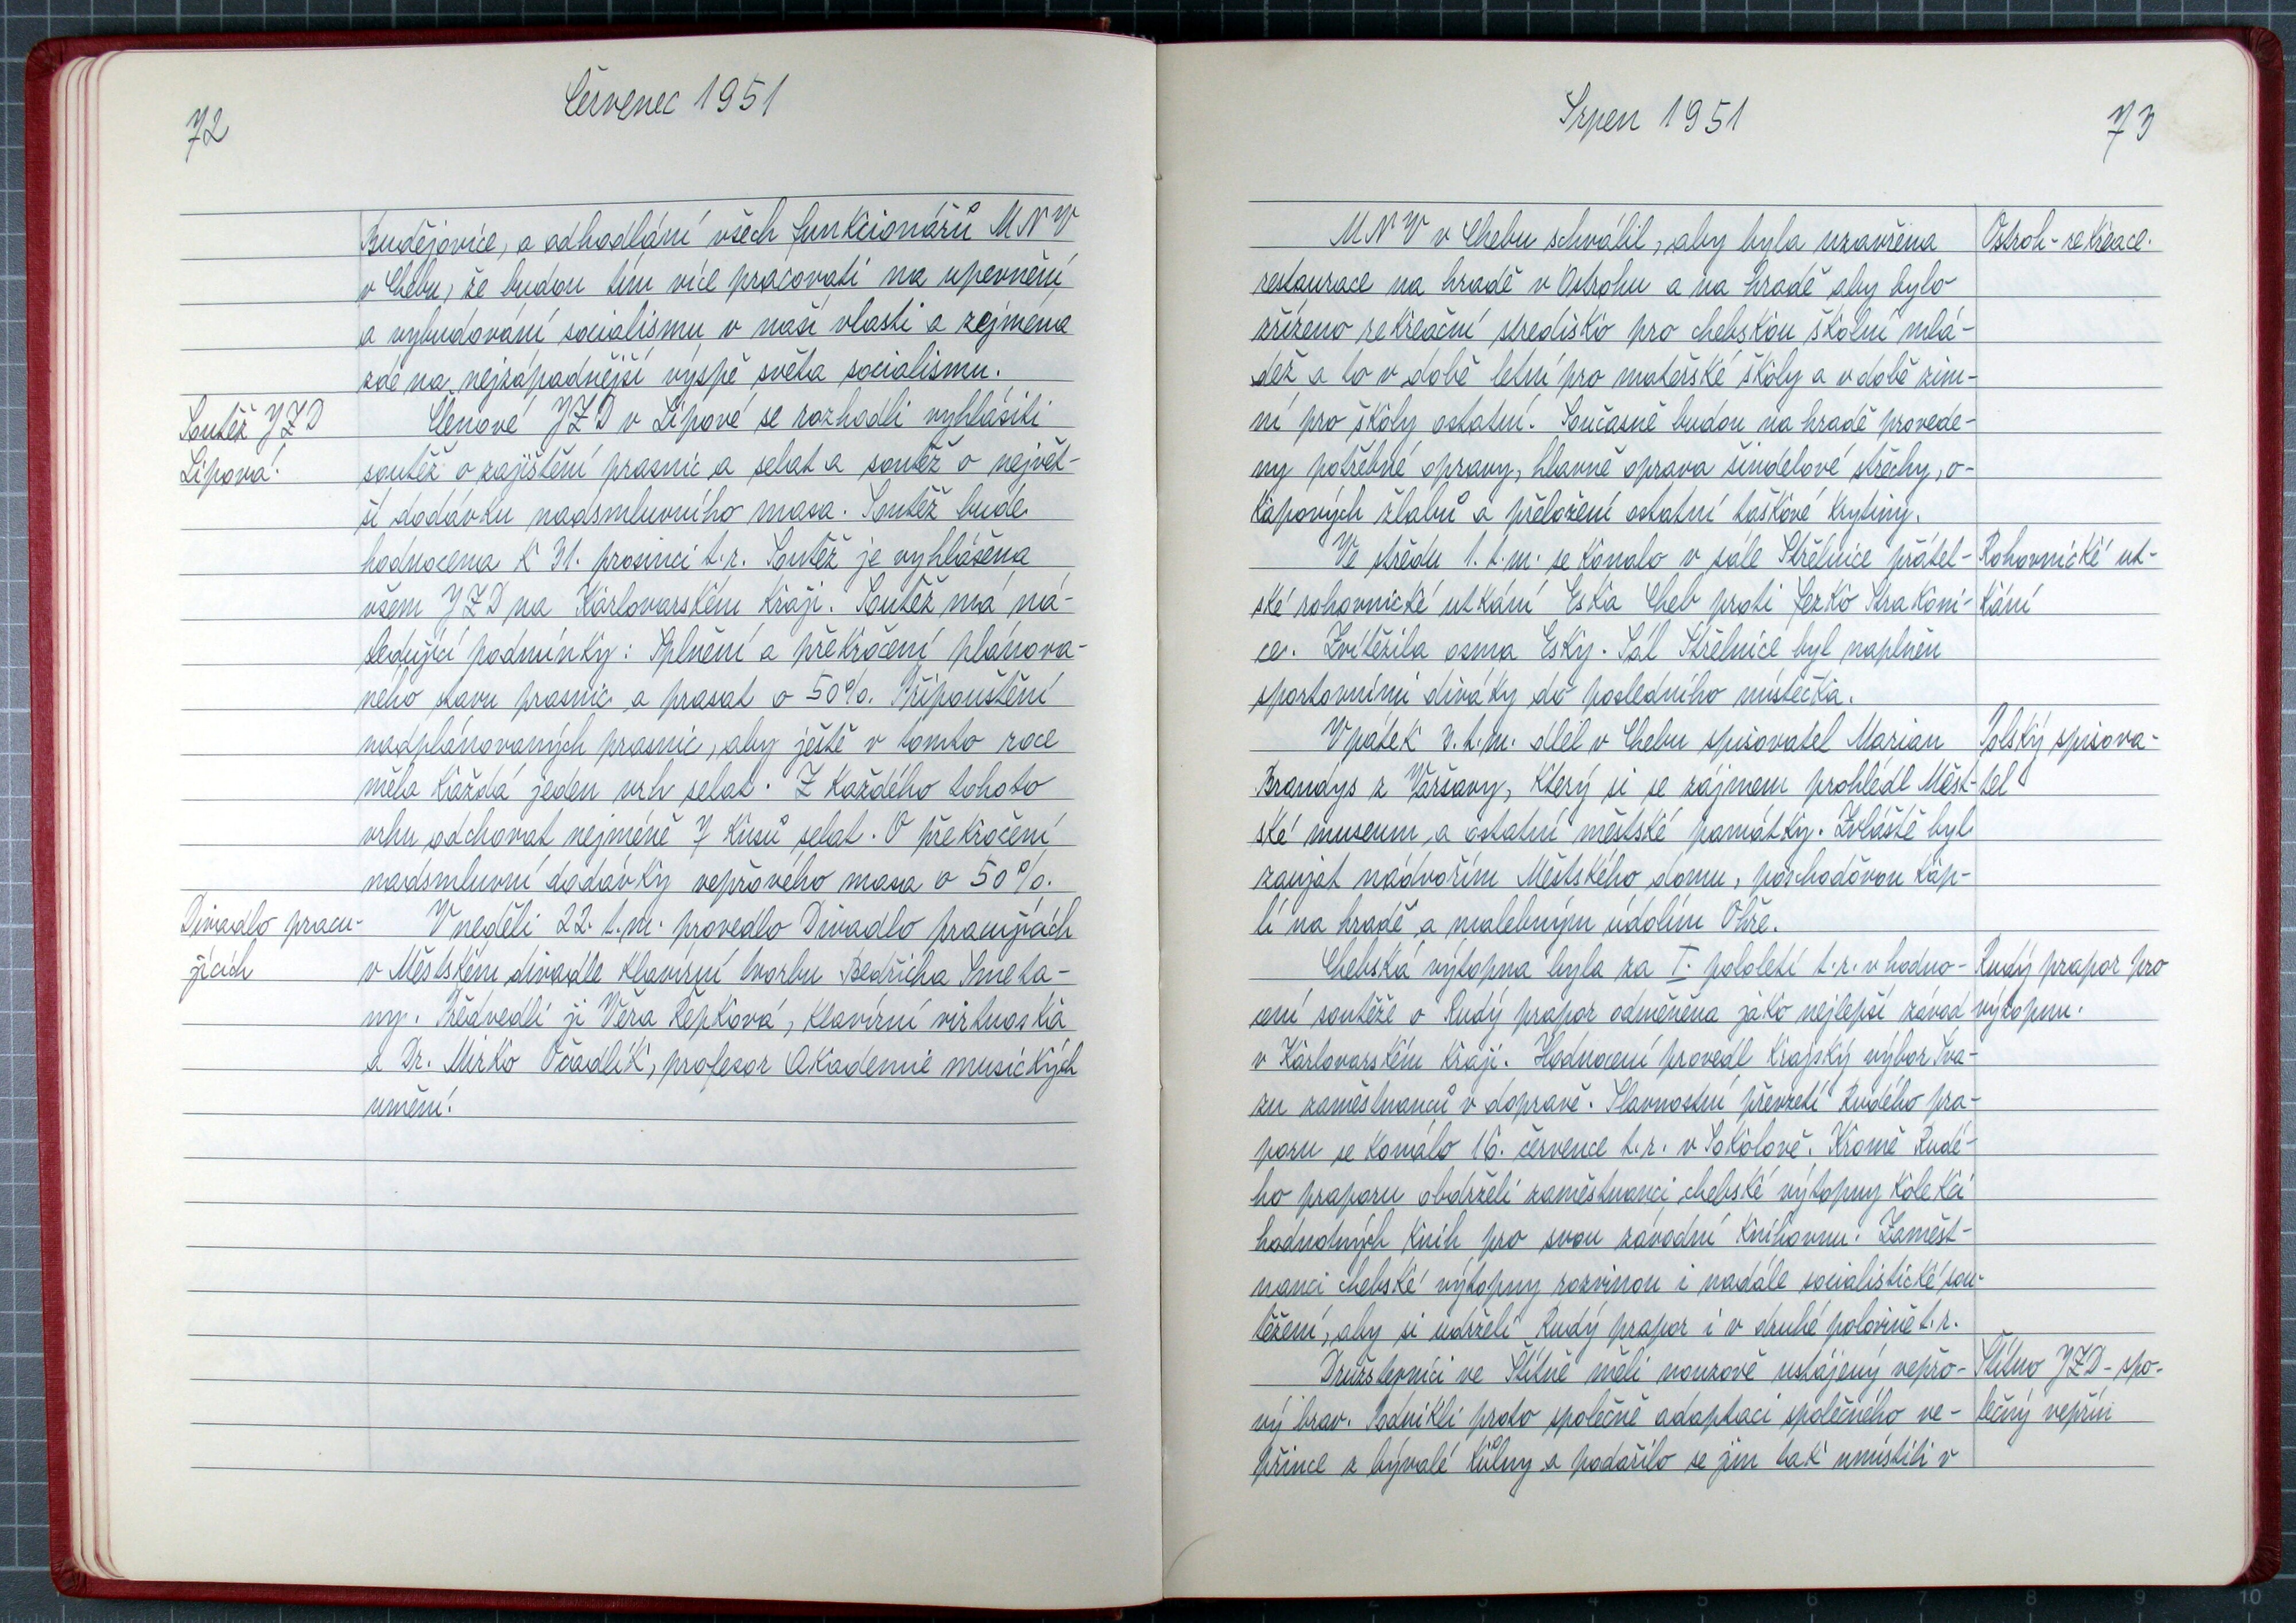 72
Červenec 1951
Budějovice, a odhodlání všech funkcionářů MNV
v Chebu, že budou tím více pracovati na upevnění
a vybudování socialismu v naší vlasti a zejména
zde na nejzápadnější výspě světa socialismu.
Soutěž JZD
Lipová.
Členové JZD v Lipové se rozhodli vyhlásiti
soutěž o zajištění prasnic a selat a soutěž o největ-
ší dodávku nadsmluvního masa. Soutěž bude
hodnocena k 31. prosinci t.r. Soutěž je vyhlášena
všem JZD na Karlovarském kraji. Soutěž má ná-
sledující podmínky: Splnění a překročení plánova-
ného stavu prasnic a prasat o 50%. Připouštění
nadplánovaných prasnic, aby ještě v tomto roce
měla každá jeden vrh selat. Z každého tohoto
vrhu odchovat nejméně 7 kusů selat. O překročení
nadsmluvní dodávky vepřového masa o 50%.
Divadlo pracu-
jících
V neděli 22. t.m. provedlo Divadlo pracujících
v Městském divadle klavírní tvorbu Bedřicha Smeta-
ny. Předvedli ji Věra Řepková, klavírní virtuoska
a Dr. Mirko Očadlík, profesor Akademie musických
umění.
Srpen 1951
73
MNV v Chebu schválil, aby byla uzavřena
restaurace na hradě v Ostrohu a na hradě aby bylo
zřízeno rekreační středisko pro chebskou školní mlá-
dež a to v době letní pro mateřské školy a v době zim-
ní pro školy ostatní. Současně budou na hradě provede-
ny potřebné opravy, hlavně oprava šindelové střechy, o-
kapových žlabů a přeložení ostatní taškové krytiny.
Ostroh - rekreace.
Ve středu 1. t.m. se konalo v sále Střelnice přátel-
ské rohovnické utkání Eska Cheb proti Fezko Strakoni-
ce. Zvítězila osma Esky. Sál Střelnice byl naplněn
sportovními diváky do posledního místečka.
Rohovnické ut-
kání
V pátek 3. t.m. dlel v Chebu spisovatel Marian
Brandys z Varšavy, který si se zájmem prohlédl Měst-
ské museum a ostatní městské památky. Zvláště byl
zaujat nádvořím Městského domu, poschoďovou kap-
lí na hradě a malebným údolím Ohře.
Polský spisova-
tel
Chebská výtopna byla za I. pololetí t.r. v hodno-
cení soutěže o Rudý prapor odměněna jako nejlepší závod
v Karlovarském kraji. Hodnocení provedl krajský výbor Sva-
zu zaměstnanců v dopravě. Slavnostní převzetí Rudého pra-
poru se konalo 16. července t.r. v Sokolově. Kromě Rudé-
ho praporu obdrželi zaměstnanci chebské výtopny kolekci
hodnotných knih pro svou závodní knihovnu. Zaměst-
nanci chebské výtopny rozvinou i nadále socialistické sou-
těžení, aby si udrželi Rudý prapor i v druhé polovině t.r.
Rudý prapor pro
výtopnu.
Družstevníci ve Štítně měli nouzově ustájený vepřo-
vý brav. Podnikli proto společně adaptaci společného ve-
přince z bývalé kůlny a podařilo se jim tak umístiti v
Štítno JZD - spo-
lečný vepřín